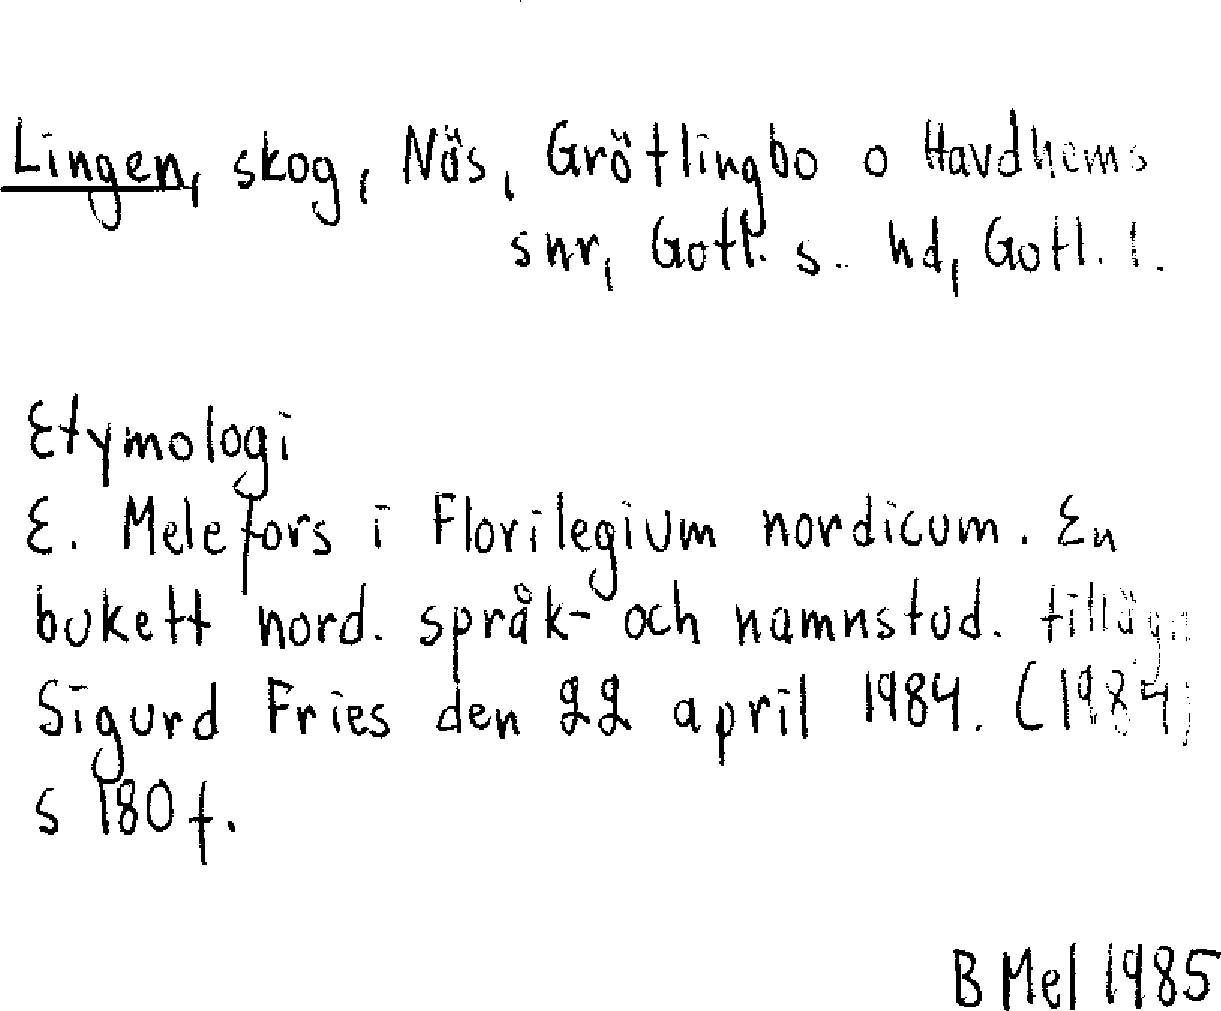 Lingen, skog, Näs, Grötlingbo o Havdhems
snr, Gotl. s. hd, Gotl. l.
Etymologi
E. Melefors i Florilegium nordicum. En
bukett nord. språk- och namnstud. tillägn
Sigurd Fries den 22 april 1984. (1984)
s 180 f.
B Mel 1985